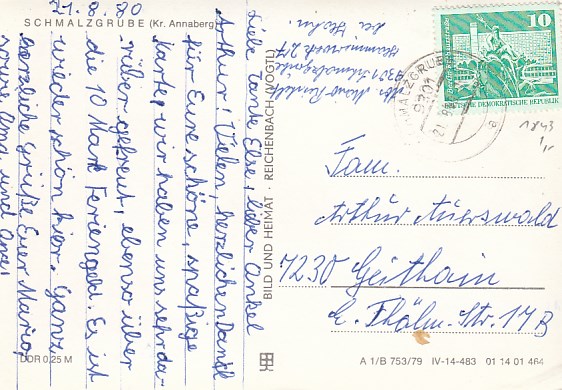 21.8.80
SCHMALZGRUBE (Kr. Annaberg)
Liebe Tante Else, lieber Onkel
Arthur! Vielen, herzlichen Dank
für Eure schöne, spaßige
Karte, wir haben uns sehr da-
rüber gefreut, ebenso über
die 10 Mark Feriengeld. Es ist
wieder schön hier. Ganz
herzliche Grüße Euer Mario,
sowie Oma und Opa.
BILD UND HEIMAT · REICHENBACH (VOGTL)
Mario
9301 Schmalzgrube
Hammerwerk
bei
10
DEUTSCHE DEMOKRATISCHE REPUBLIK
SCHMALZGRUBE
9301
21.8.80
a
Fam.
Arthur Auerswald
7230 Geithain
E.-Thälm.-Str. 17B
DDR 0,25 M
A 1/B 753/79 IV-14-483 01 14 01 464